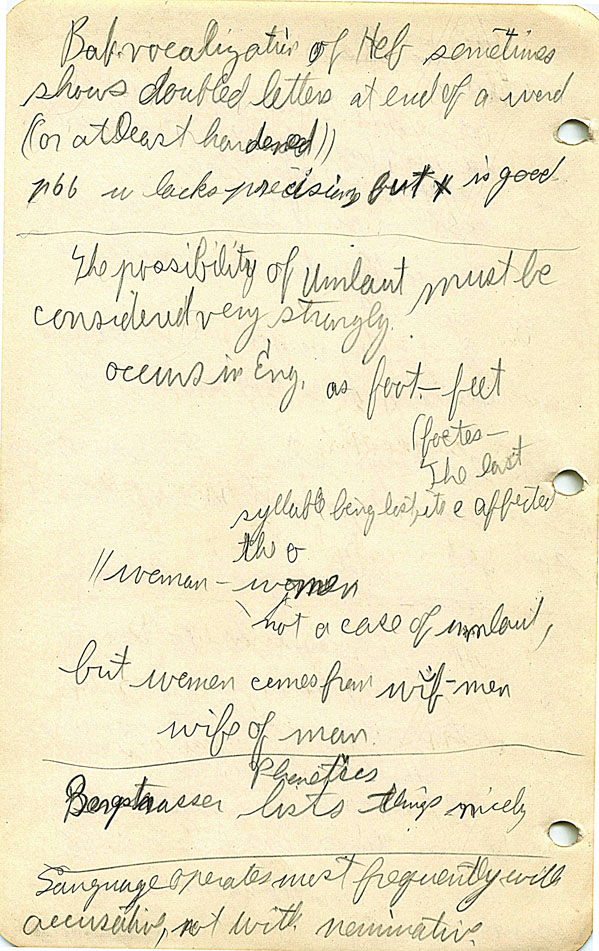 Bab. vocalization of Heb sometimes
shows doubled letters at end of a word
(or at least hardened))
p66 u lacks precision but x is good
The possibility of Umlaut must be
considered very strongly.
occurs in Eng. as foot — feet
(foetes —
The last
syllable being lost, its e affected
the o
// woman — women
not a case of umlaut,
but women comes from wif-men
wife of man.
Phonetics
Bergstrasser lists things nicely
Language operates most frequently with
accusative, not with nominative.